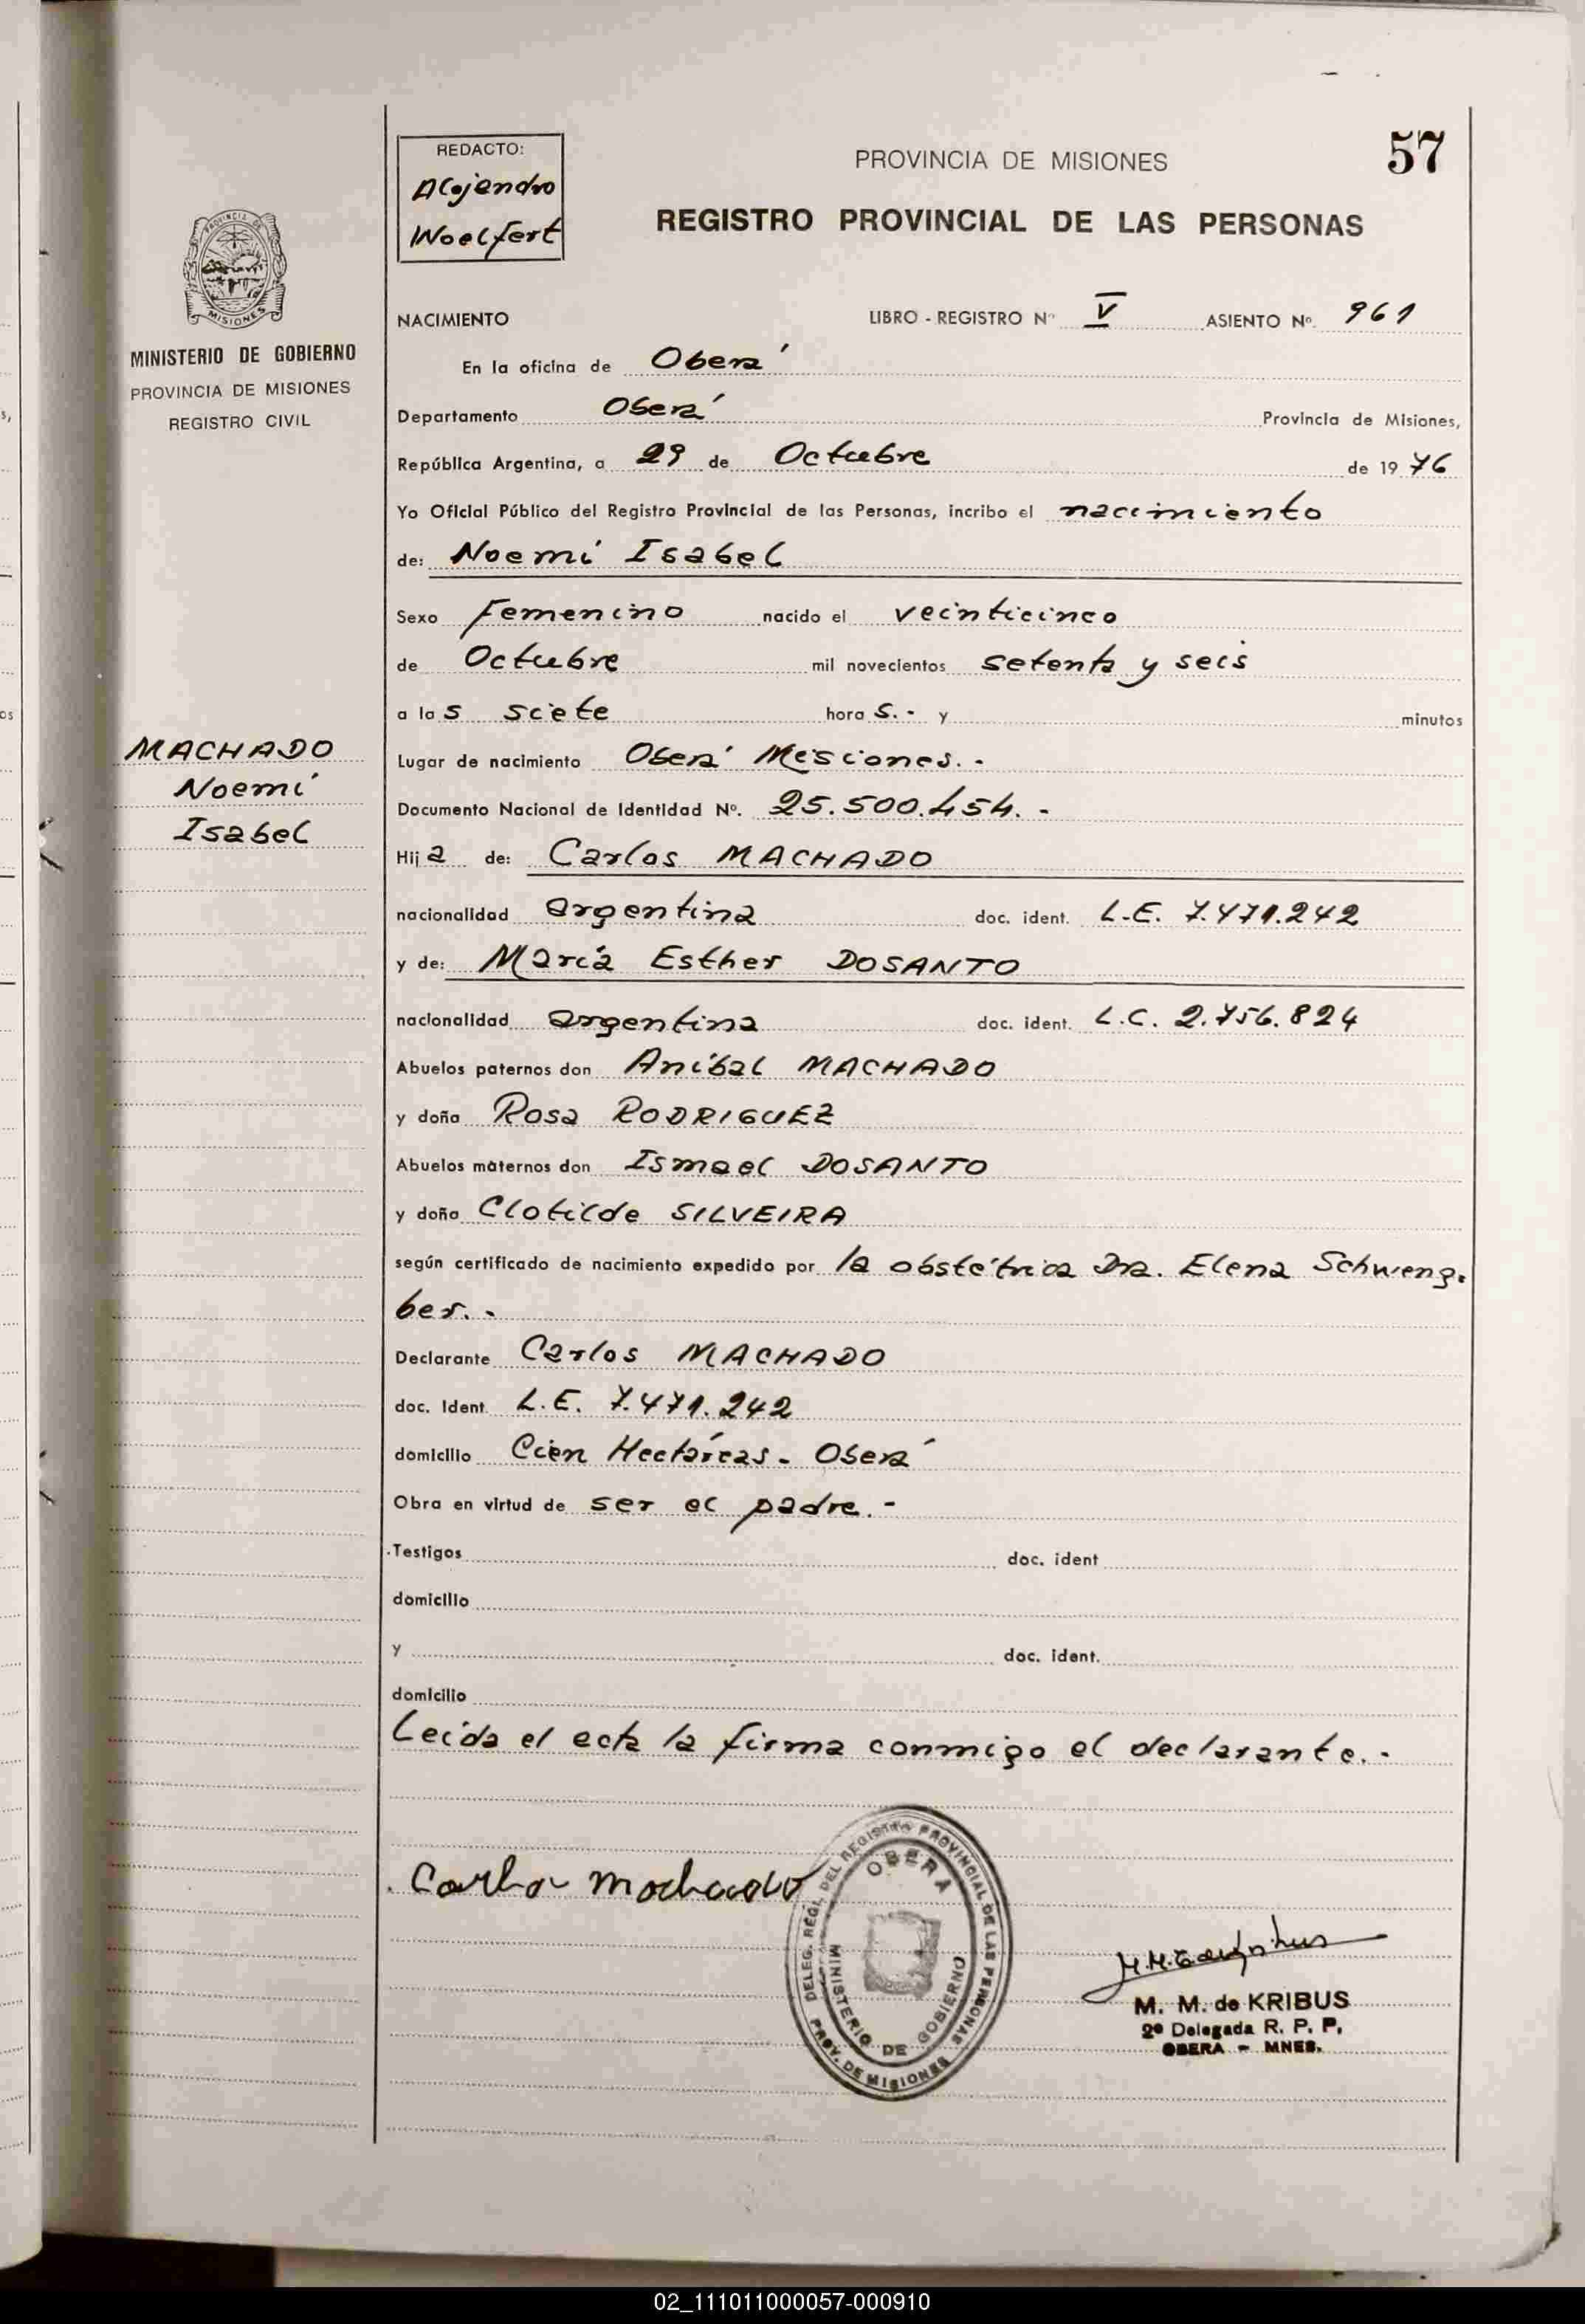 57
REDACTO:
Alejandro
Woelfert
PROVINCIA DE MISIONES
REGISTRO PROVINCIAL DE LAS PERSONAS
PROVINCIA DE
MISIONES
MINISTERIO DE GOBIERNO
PROVINCIA DE MISIONES
REGISTRO CIVIL
MACHADO
Noemí
Isabel
NACIMIENTO LIBRO - REGISTRO Nº V ASIENTO Nº 961
En la oficina de Oberá
Departamento Oberá Provincia de Misiones,
República Argentina, a 29 de Octubre de 1976
Yo Oficial Público del Registro Provincial de las Personas, incribo el nacimiento
de: Noemí Isabel
Sexo Femenino nacido el veinticinco
de Octubre mil novecientos setenta y seis
a las siete horas.- y minutos
Lugar de nacimiento Oberá Misiones.-
Documento Nacional de Identidad Nº. 25.500.454.-
Hija de: Carlos MACHADO
nacionalidad argentina doc. ident. L.E. 7.471.242
y de: María Esther DOSANTO
nacionalidad argentina doc. ident. L.C. 2.756.824
Abuelos paternos don Anibal MACHADO
y doña Rosa RODRIGUEZ
Abuelos maternos don Ismael DOSANTO
y doña Clotilde SILVEIRA
según certificado de nacimiento expedido por la obstétrica Dra. Elena Schweng-
ber.-
Declarante Carlos MACHADO
doc. Ident. L.E. 7.471.242
domicilio Cien Hectáreas - Oberá
Obra en virtud de ser el padre.-
Testigos doc. ident
domicilio
y doc. ident.
domicilio
Leída el acta la firma conmigo el declarante.-
Carlos Machado
DELEG. REGL. DEL REGISTRO PROVINCIAL DE LAS PERSONAS
OBERA
MINISTERIO DE GOBIERNO
PROV. DE MISIONES
M. M. de KRIBUS
2ª Delegada R. P. P.
OBERA - MNES.
02_111011000057-000910